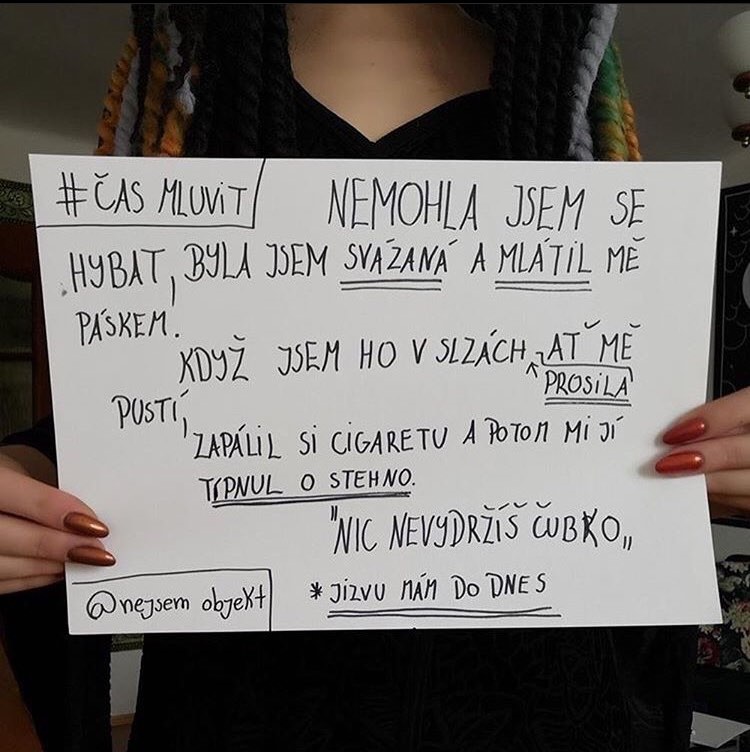 #ČAS MLUVIT
NEMOHLA JSEM SE
HYBAT, BYLA JSEM SVÁZANÁ A MLÁTIL MĚ
PÁSKEM.
KDYŽ JSEM HO V SLZÁCH PROSILA AŤ MĚ
PUSTÍ,
ZAPÁLIL SI CIGARETU A POTOM MI JÍ
TÍPNUL O STEHNO.
"NIC NEVYDRŽÍŠ ČUBKO„
@nejsem objekt
* JIZVU MÁM DO DNES